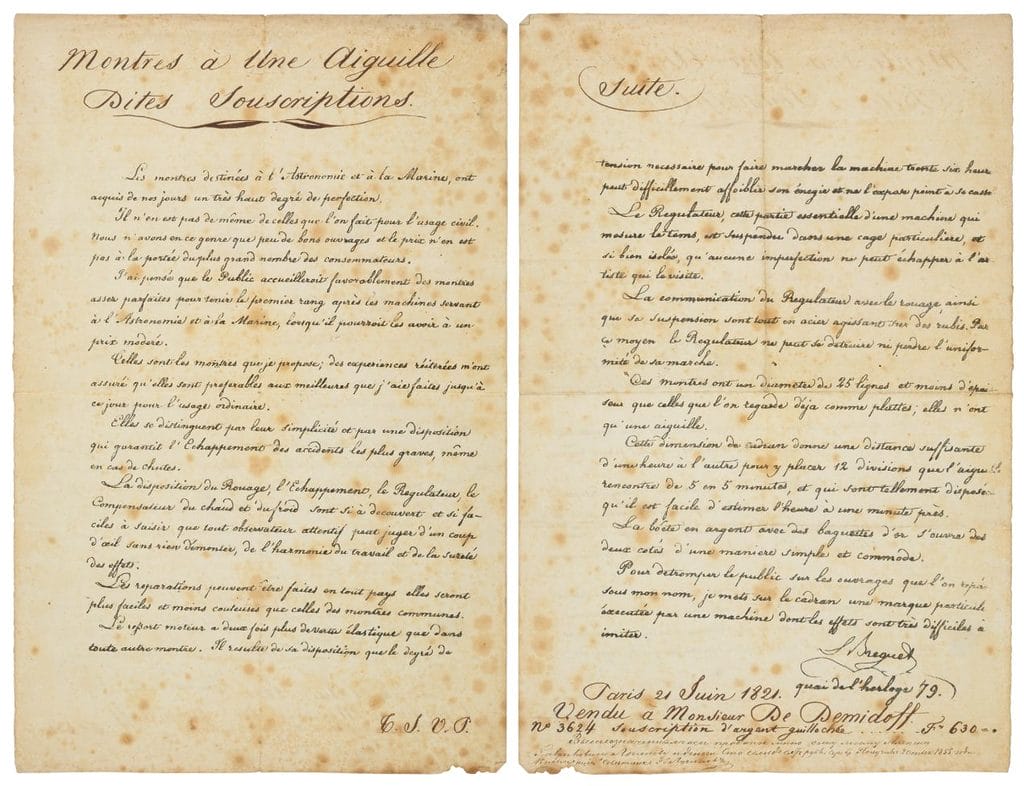 Montres à Une Aiguille
Dites Souscriptions.
Les montres destinées à l'Astronomie et à la Marine, ont
acquis de nos jours un très haut degré de perfection.
Il n'en est pas de même de celles que l'on fait pour l'usage civil.
Nous n'avons en ce genre que peu de bons ouvrages et le prix n'en est
pas à la portée du plus grand nombre des consommateurs.
J'ai pensé que le Public accueilleroit favorablement des montres
assez parfaites pour tenir le premier rang après les machines servant
à l'Astronomie et à la Marine, lorsqu'il pourroit les avoir à un
prix modéré.
Telles sont les montres que je propose; des experiences réitérées m'ont
assuré qu'elles sont preferables aux meilleures que j'aie faites jusqu'à
ce jour pour l'usage ordinaire.
Elles se distinguent par leur simplicité et par une disposition
qui garantit l'Echappement des accidents les plus graves, même
en cas de chutes.
La disposition du Rouage, l'Echappement, le Regulateur, le
Compensateur du chaud et du froid sont si à decouvert et si fa-
ciles à saisir que tout observateur attentif peut juger d'un coup
d'œil sans rien demonter, de l'harmonie du travail et de la sureté
des effets.
Les reparations peuvent être faites en tout pays elles seront
plus faciles et moins couteuses que celles des montres communes.
Le resort moteur a deux fois plus de vertu élastique que dans
toute autre montre. Il resulte de sa disposition que le degré de
T. S. V. P.
Suite.
tension necessaire pour faire marcher la machine trente six heur
peut difficillement affoiblir son énegie et ne l'expose point à se casse
Le Regulateur, cette partie essentielle d'une machine qui
mesure le tems, est suspendu dans une cage particulière, et
si bien isolés, qu'aucune imperfection ne peut échapper à l'ar-
tiste qui le visite.
La communication du Regulateur avec le rouage ainsi
que sa suspension sont tout en acier agissant sur des rubis. Par
ce moyen le Regulateur ne peut se detruire ni perdre l'unifor-
mité de sa marche.
Ces montres ont un diametre de 25 lignes et moins d'épai
seur que celles que l'on regarde déja comme plattes; elle n'ont
qu'une aiguille.
Cette dimension de cadran donne une distance suffisante
d'une heure à l'autre pour y placer 12 divisions que l'aigu
rencontre de 5 en 5 minutes, et qui sont tellement disposé
qu'il est facile d'estimer l'heure a une minute près.
La boëte en argent avec des baguettes d'or s'ouvre des
deux cotés d'une maniere simple et commode.
Pour detromper le public sur les ouvrages que l'on répa
sous mon nom, je mets sur le cadran une marque particule
éxecutée par une machine dont les effets sont très difficiles à
imiter.
L Breguet
quai de l'horloge 79.
Paris 21 Juin 1821.
Vendu a Monsieur De Demidoff.
No 3624 souscription d'argent guillochée .... Fs 630 =